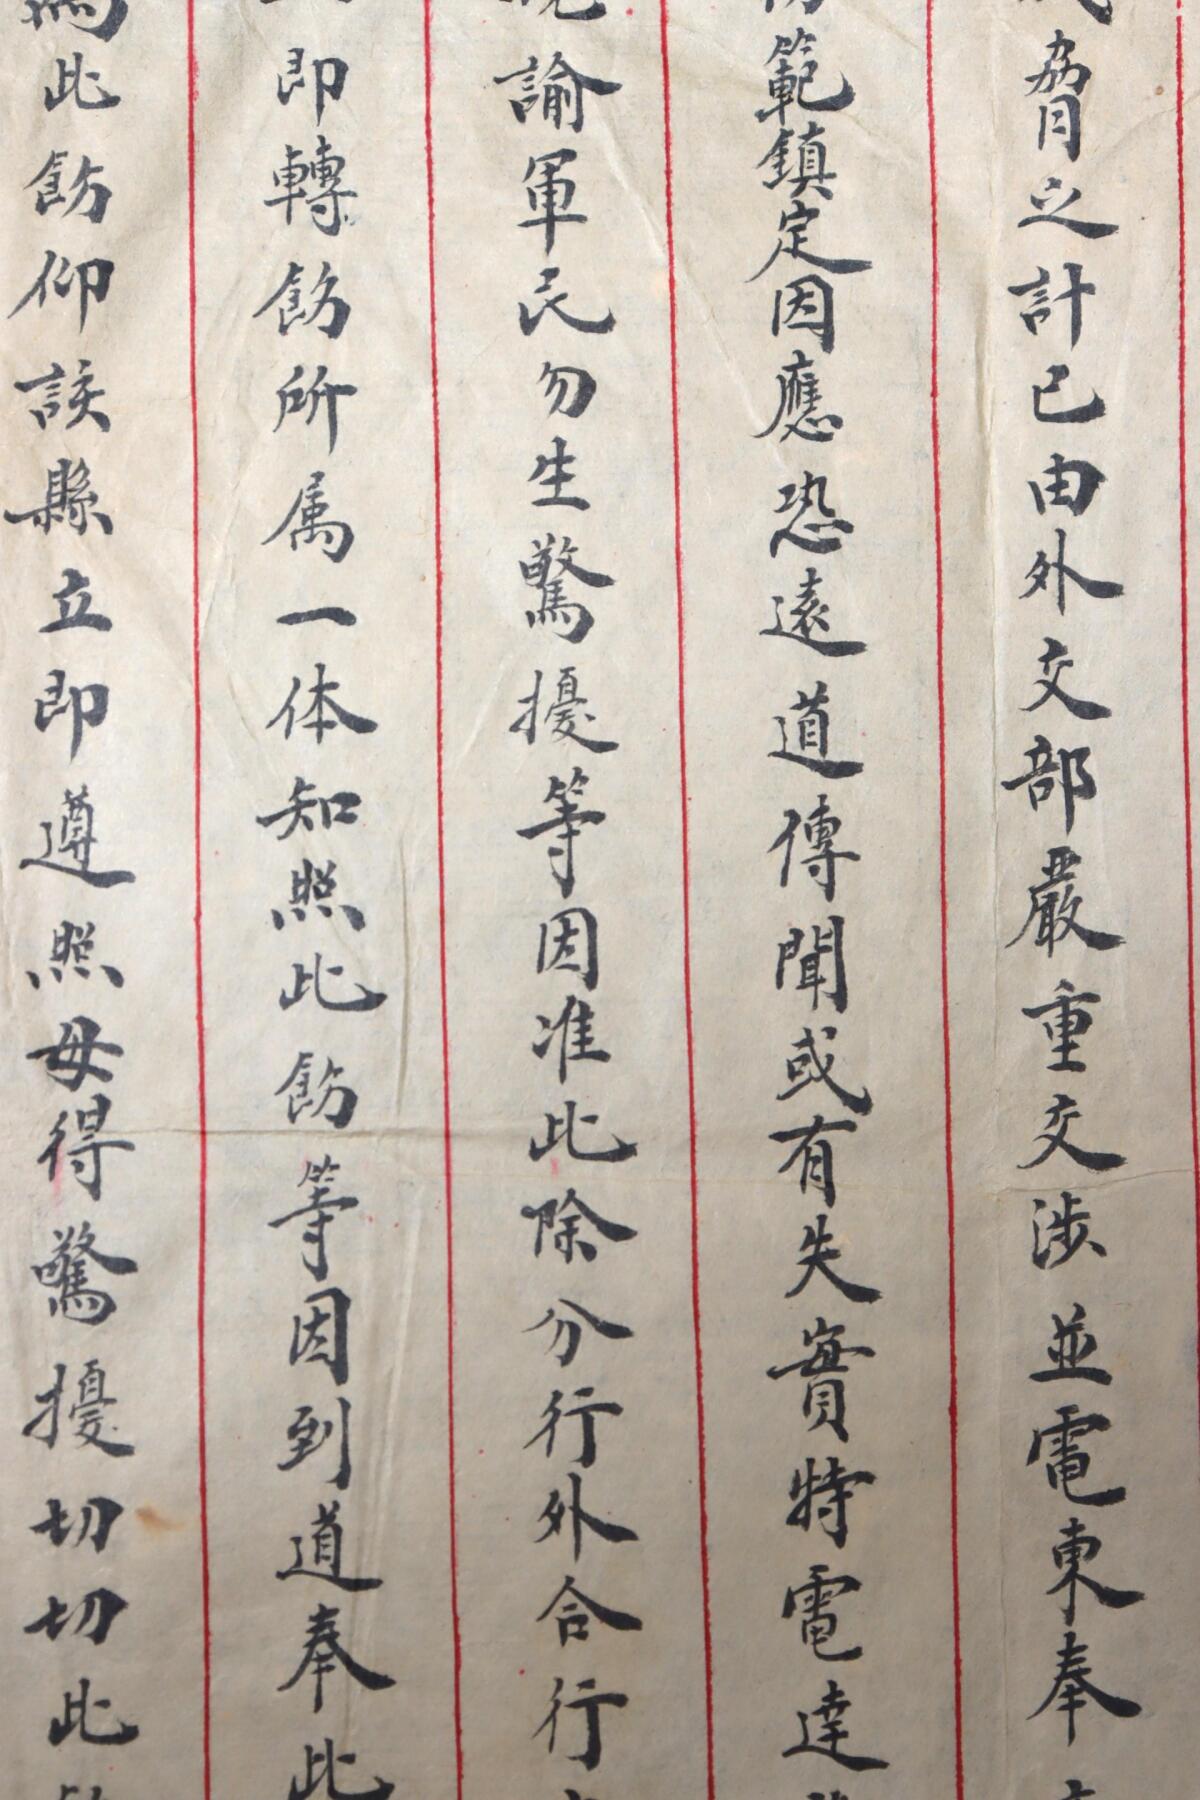 脅之計已由外交部嚴重交涉並電東奉
範鎮定因應恐遠道傳聞或有失實特電達
諭軍民勿生驚擾等因准此除分行外合行
即轉飭所属一体知照此飭等因到道奉此
此飭仰該縣立即遵照毋得驚擾切切此